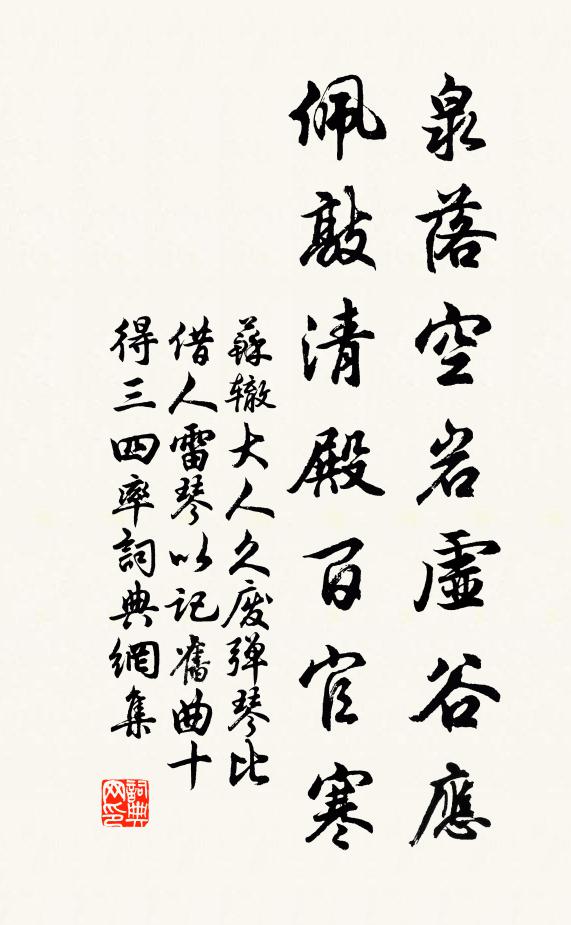 泉落空岩虛谷應
佩敲清殿百官寒
蘇辙大人久废弹琴比
借人雷琴以記舊曲十
得三四率詞典網集
詞典网印